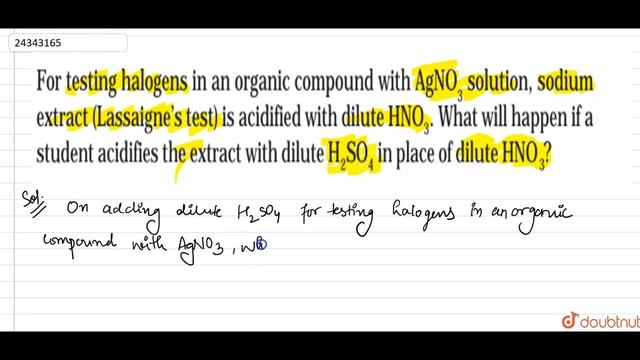 24343165
For testing halogens in an organic compound with AgNO₃ solution, sodium
extract (Lassaigne's test) is acidified with dilute HNO₃. What will happen if a
student acidifies the extract with dilute H₂SO₄ in place of dilute HNO₃?
Sol:
On adding dilute H₂SO₄ for testing halogens in an organic
compound with AgNO₃, w
doubtnut